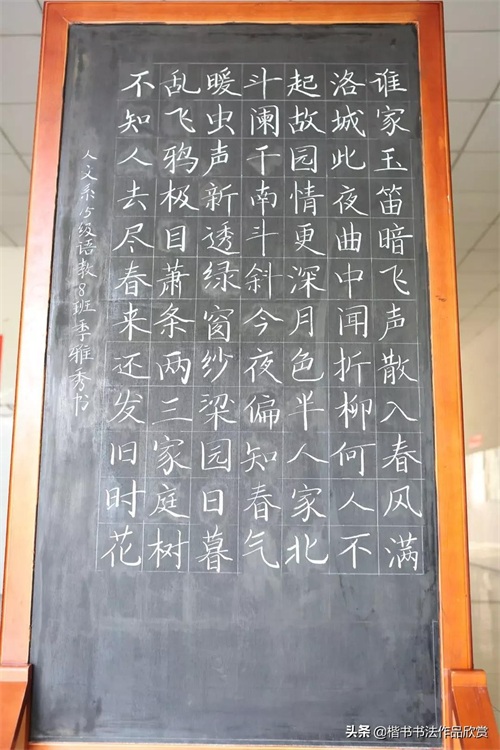 谁家玉笛暗飞声散入春风满
洛城此夜曲中闻折柳何人不
起故园情更深月色半人家北
斗阑干南斗斜今夜偏知春气
暖虫声新透绿窗纱梁园日暮
乱飞鸦极目萧条两三家庭树
不知人去尽春来还发旧时花
人文系15级语教8班季雅秀书
头条 @楷书书法作品欣赏